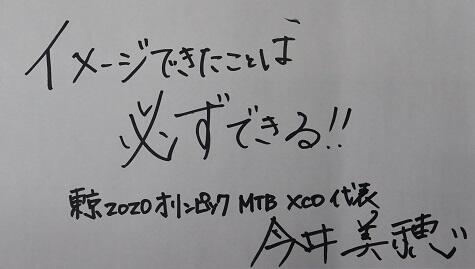 イメージできたことは
必ずできる!!
東京2020オリンピック MTB XCO 代表
今井美穂